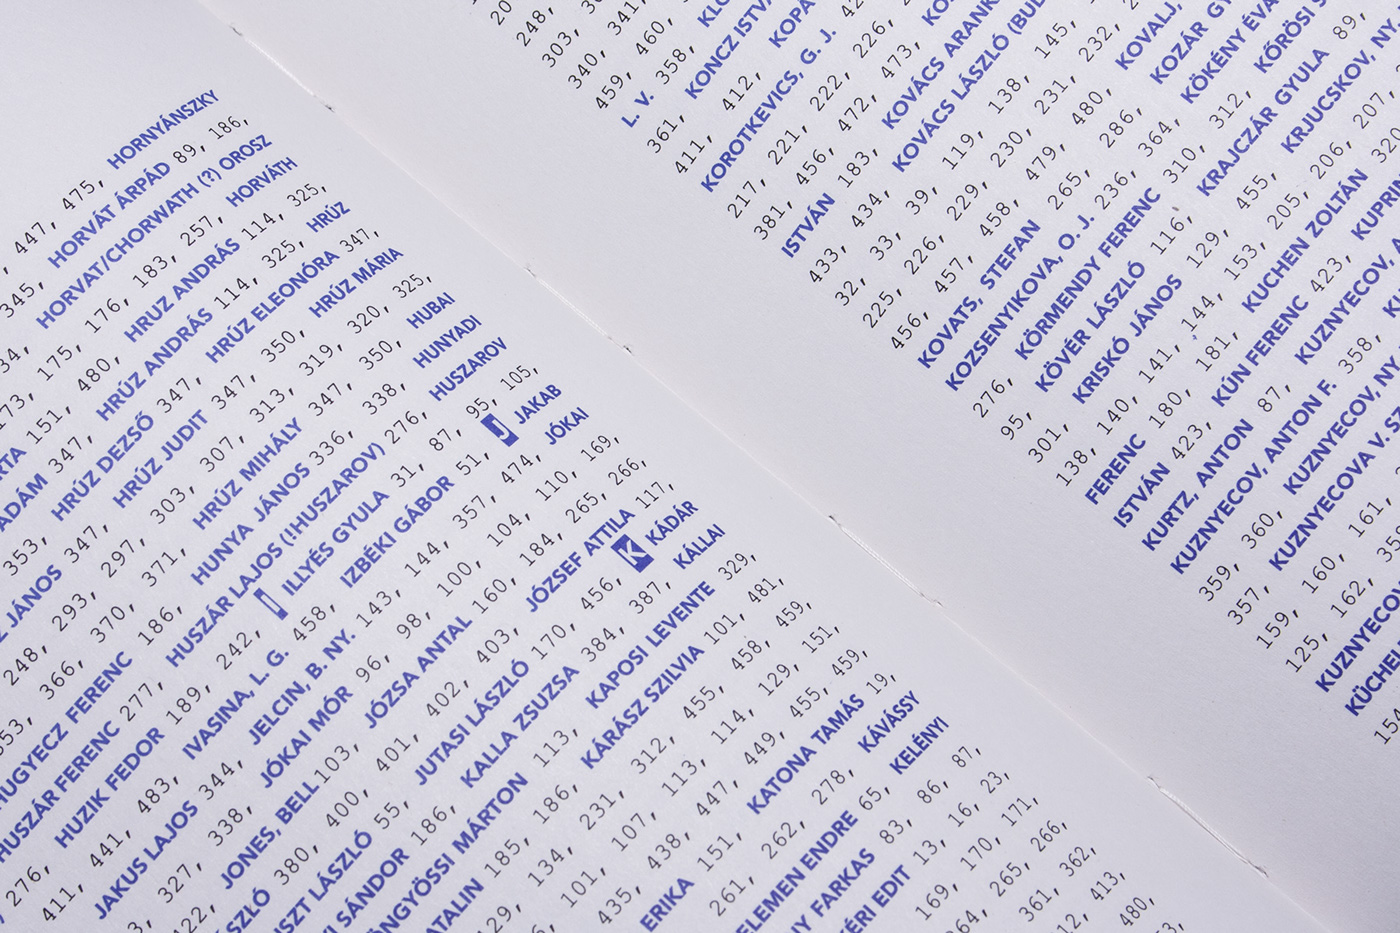 447, 475, HORNYÁNSZKY
345, HORVÁT ÁRPÁD 89, 186,
34, HORVAT/CHORWATH (?) OROSZ
173, 175, 176, 183, 257, HORVÁTH
RTA 151, 480, HRUZ ANDRÁS 114, 325,
ADÁM 347, HRÚZ ANDRÁS 114, 325, HRÚZ
353, HRÚZ DEZSŐ 347, HRÚZ ELEONÓRA 347,
Z JÁNOS 347, HRÚZ JUDIT 347, 350, HRÚZ MÁRIA
248, 293, 297, 303, 307, 313, 319, 320, 325,
353, 366, 370, 371, HRÚZ MIHÁLY 347, 350, HUBAI
HUGYECZ FERENC 186, HUNYA JÁNOS 336, 338, HUNYADI
HUSZÁR FERENC 277, HUSZÁR LAJOS (!HUSZAROV) 276, HUSZAROV
276, HUZIK FEDOR 189, 242, I ILLYÉS GYULA 31, 87, 95, 105,
411, 441, 483, IVASINA, L. G. 458, IZBÉKI GÁBOR 51, J JAKAB
JAKUS LAJOS 344, JELCIN, B. NY. 143, 144, 357, 474, JÓKAI
3, 327, 338, JÓKAI MÓR 96, 98, 100, 104, 110, 169,
422, JONES, BELL 103, JÓZSA ANTAL 160, 184, 265, 266,
SZLÓ 380, 400, 401, 402, 403, JÓZSEF ATTILA 117,
SZT LÁSZLÓ 55, JUTASI LÁSZLÓ 170, 456, K KÁDÁR
I SÁNDOR 186, KALLA ZSUZSA 384, 387, KÁLLAI
ONGYÖSSI MÁRTON 113, KAPOSI LEVENTE 329,
ATALIN 185, 186, KÁRÁSZ SZILVIA 101, 481,
129, 134, 231, 312, 455, 458, 459,
101, 107, 113, 114, 129, 151,
435, 438, 447, 449, 455, 459,
ERIKA 151, KATONA TAMÁS 19,
261, 262, 278, KÁVÁSSY
ELEMEN ENDRE 65, KELÉNYI
NY FARKAS 83, 86, 87,
ÉRI EDIT 13, 16, 23,
169, 170, 171,
264, 265, 266,
361, 362,
12, 413,
480,
20
248,
303, 30
340, 341,
459, 460, KLO
L. V. 358,
361, KONCZ ISTVÁ
411, 412, KOPÁ
KOROTKEVICS, G. J. 42
217, 221, 222, 226, 2
381, 456, 472, 473, KO
ISTVÁN 183, KOVÁCS ARANK
433, 434, KOVÁCS LÁSZLÓ (BUD
32, 33, 39, 119, 138, 145,
225, 226, 229, 230, 231, 232, 2
456, 457, 458, 479, 480, KOVALJ,
KOVATS, STEFAN 265, 286, KOZÁR GY
KOZSENYIKOVA, O. J. 236, 364, KŐKÉNY ÉVA
276, KÖRMENDY FERENC 310, 312, KŐRÖSI S
95, KÖVÉR LÁSZLÓ 116, KRAJCZÁR GYULA 89,
301, KRISKÓ JÁNOS 129, 455, KRJUCSKOV, NY.
138, 140, 141, 144, 153, 205, 206, 207,
FERENC 180, 181, KUCHEN ZOLTÁN 320
ISTVÁN 423, KÚN FERENC 423, KUPRI
KURTZ, ANTON 87, KUZNYECOV, A
KUZNYECOV, ANTON F. 358, K
359, 360, KUZNYECOV, NY
357, KUZNYECOVA V. SZ
159, 160, 161, 2
125, 162, 35
KUZNYECO
KÜCHEL
154